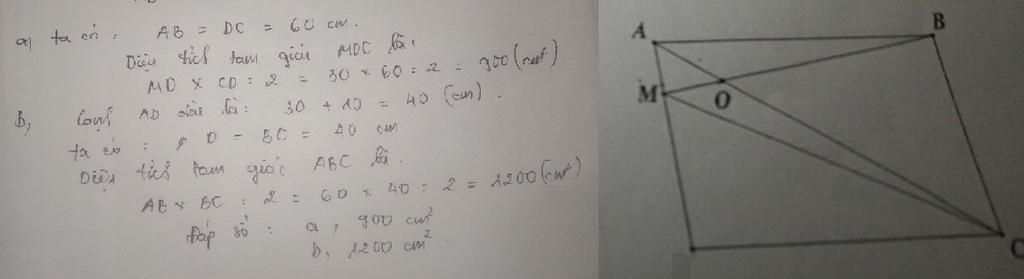 a) ta có: AB = DC = 60 cm.
Diện tích tam giác MDC là:
MD x CD : 2 = 30 x 60 : 2 = 900 (cm²)
b, Cạnh AD dài là: 30 + 10 = 40 (cm).
ta có: D = BC = 40 cm
Diện tích tam giác ABC là.
AB x BC : 2 = 60 x 40 : 2 = 1200 (cm²)
Đáp số: a, 900 cm²
b, 1200 cm²
A
B
M
O
C